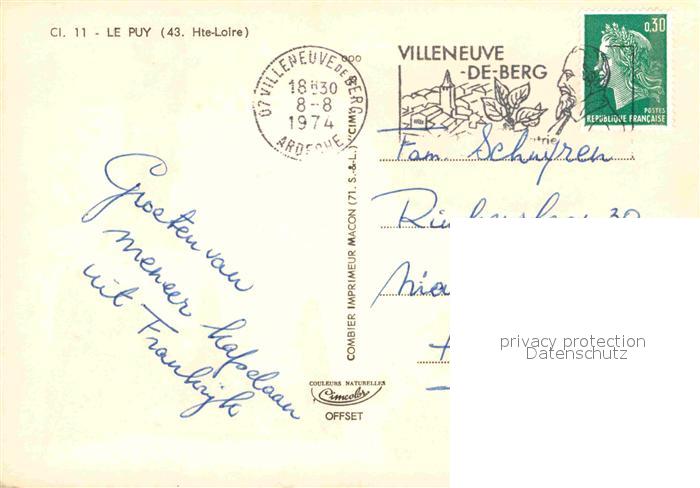 Cl. 11 - LE PUY (43. Hte-Loire)
07 VILLENEUVE DE BERG
18H30
8-8
1974
ARDECHE
VILLENEUVE
-DE-BERG
0,30
POSTES
REPUBLIQUE FRANÇAISE
Fam. Schuyren
30
Groeten van
meneer
uit Frankrijk
COMBIER IMPRIMEUR MACON (71. S.-&-L.) "CIM"
COULEURS NATURELLES
Cimcolor
OFFSET
privacy protection
Datenschutz